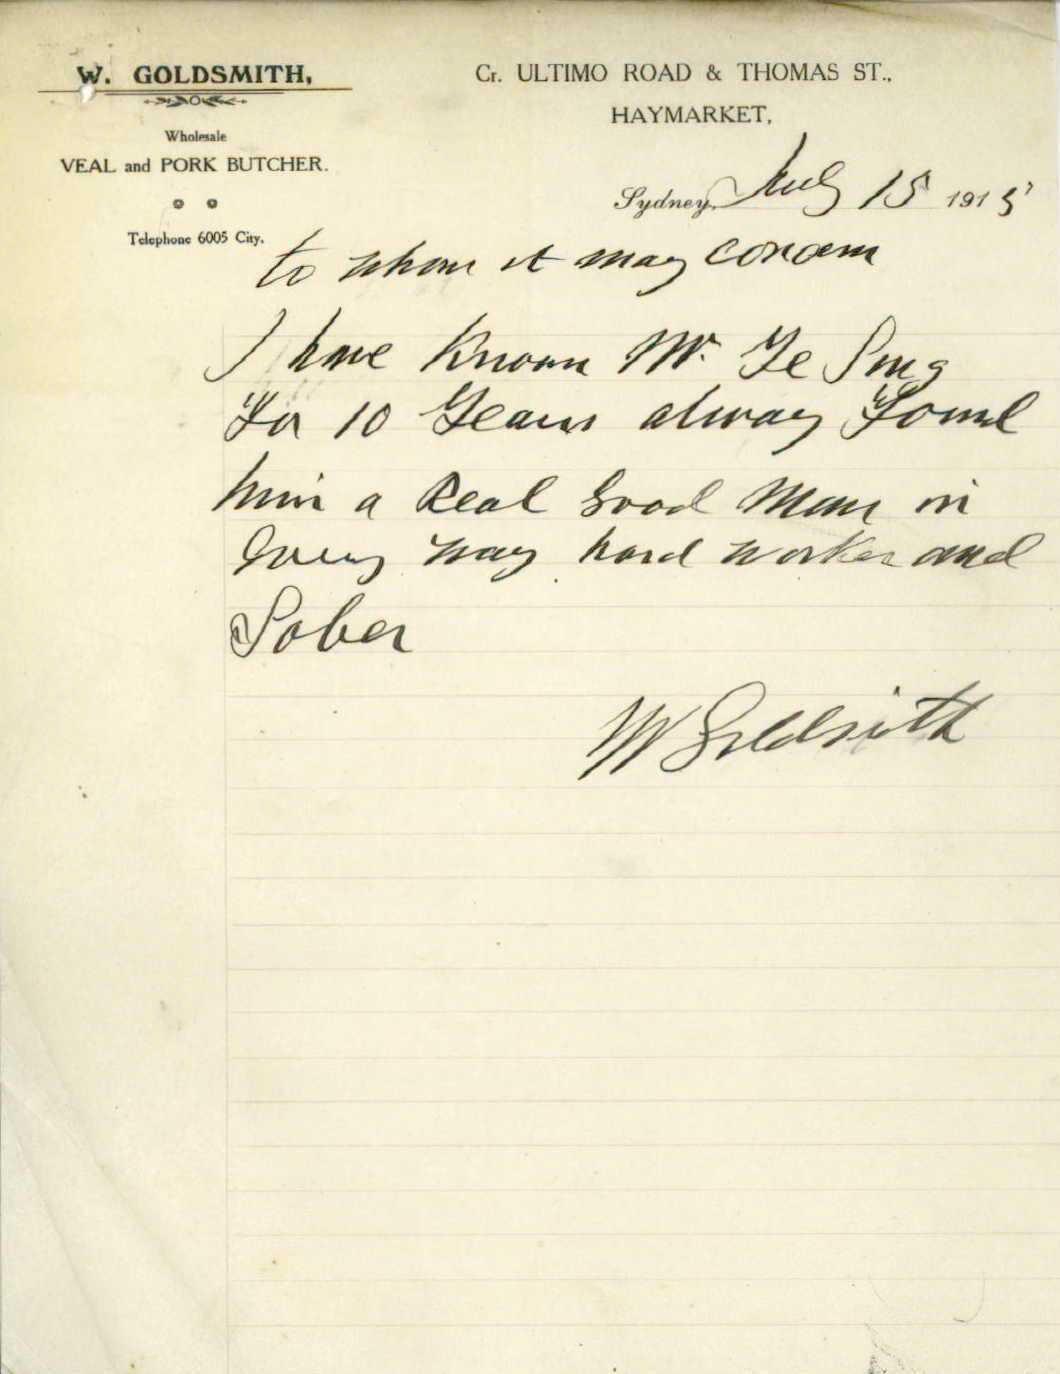 W. GOLDSMITH,
Wholesale
VEAL and PORK BUTCHER.
Telephone 6005 City.
Cr. ULTIMO ROAD & THOMAS ST.,
HAYMARKET,
Sydney, July 15 1915
to whom it may concern
I have Known Mr. Ye Sing
For 10 Years alway Found
him a Real Good Man in
Every way hard worker and
Sober
W Goldsmith